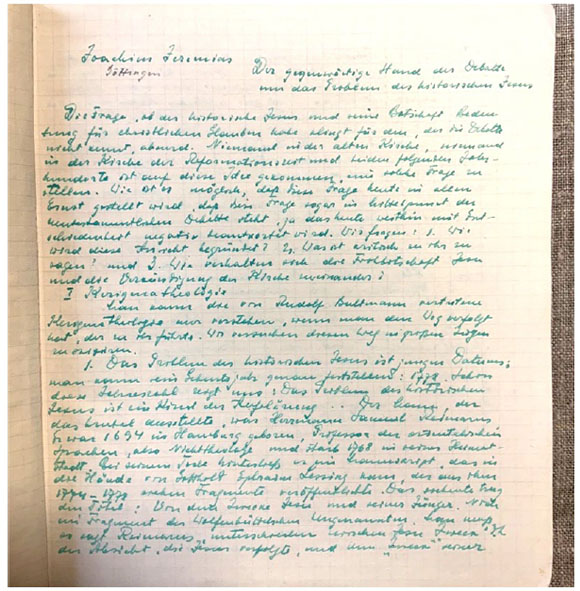 Joachim Jeremias
Göttingen
Der gegenwärtige Stand der Debatte
um das Problem des historischen Jesus
Die Frage, ob der historische Jesus und seine Botschaft Bedeu-
tung für christlichen Glauben habe klingt für den, der die Debatte
nicht kennt, absurd. Niemand in der alten Kirche, niemand
in der Kirche der Reformationszeit und beiden folgenden Jahr-
hunderte ist auf diese Idee gekommen, eine solche Frage zu
stellen. Wie ist es möglich, daß diese Frage heute in allem
Ernst gestellt wird, daß diese Frage sogar im Mittelpunkt der
neutestamentlichen Debatte steht, ja das heute weithin mit Ent-
schiedenheit negativ beantwortet wird. Wir fragen: 1. Wie
wird diese Ansicht begründet? 2. Was ist kritisch zu ihr zu
sagen? und 3. Wie verhalten sich die Frohbotschaft Jesu
und die Verkündigung der Kirche zueinander?
I Kerygmatheologie
Man kann die von Rudolf Bultmann vertretene
Kerygmatheologie nur verstehen, wenn man den Weg verfolgt
hat, der zu ihr führte. Wir versuchen diesen Weg in großen Zügen
zu
1. Das Problem des historischen Jesus ist jungen Datums;
man kann sein Geburtsjahr genau feststellen: 1778. Schon
diese Jahreszahl sagt uns: Das Problem des historischen
Jesus ist ein Kind der Aufklärung .. Der Mann, der
das erstmal darstellte, war Hermann Samuel Reimarus
Er war 1694 in Hamburg geboren, Professor der orientalischen
Sprachen, also Nichttheologe und starb 1768 in seiner Heimat-
stadt. Bei seinem Tode hinterließ er ein Manuskript, das in
die Hände von Gotthold Ephraim Lessing kam, der aus ihm
1774-1778 sieben Fragmente veröffentlichte. Das siebente trug
den Titel: Von dem Zwecke Jesu und seiner Jünger. Noch
ein Fragment des Wolfenbüttelschen Ungenannten. Man muß
so sagt Reimarus, unterscheiden zwischen Jesu "Zweck" d.h.
der Absicht, die Jesus verfolgte, und dem "Zweck" seiner